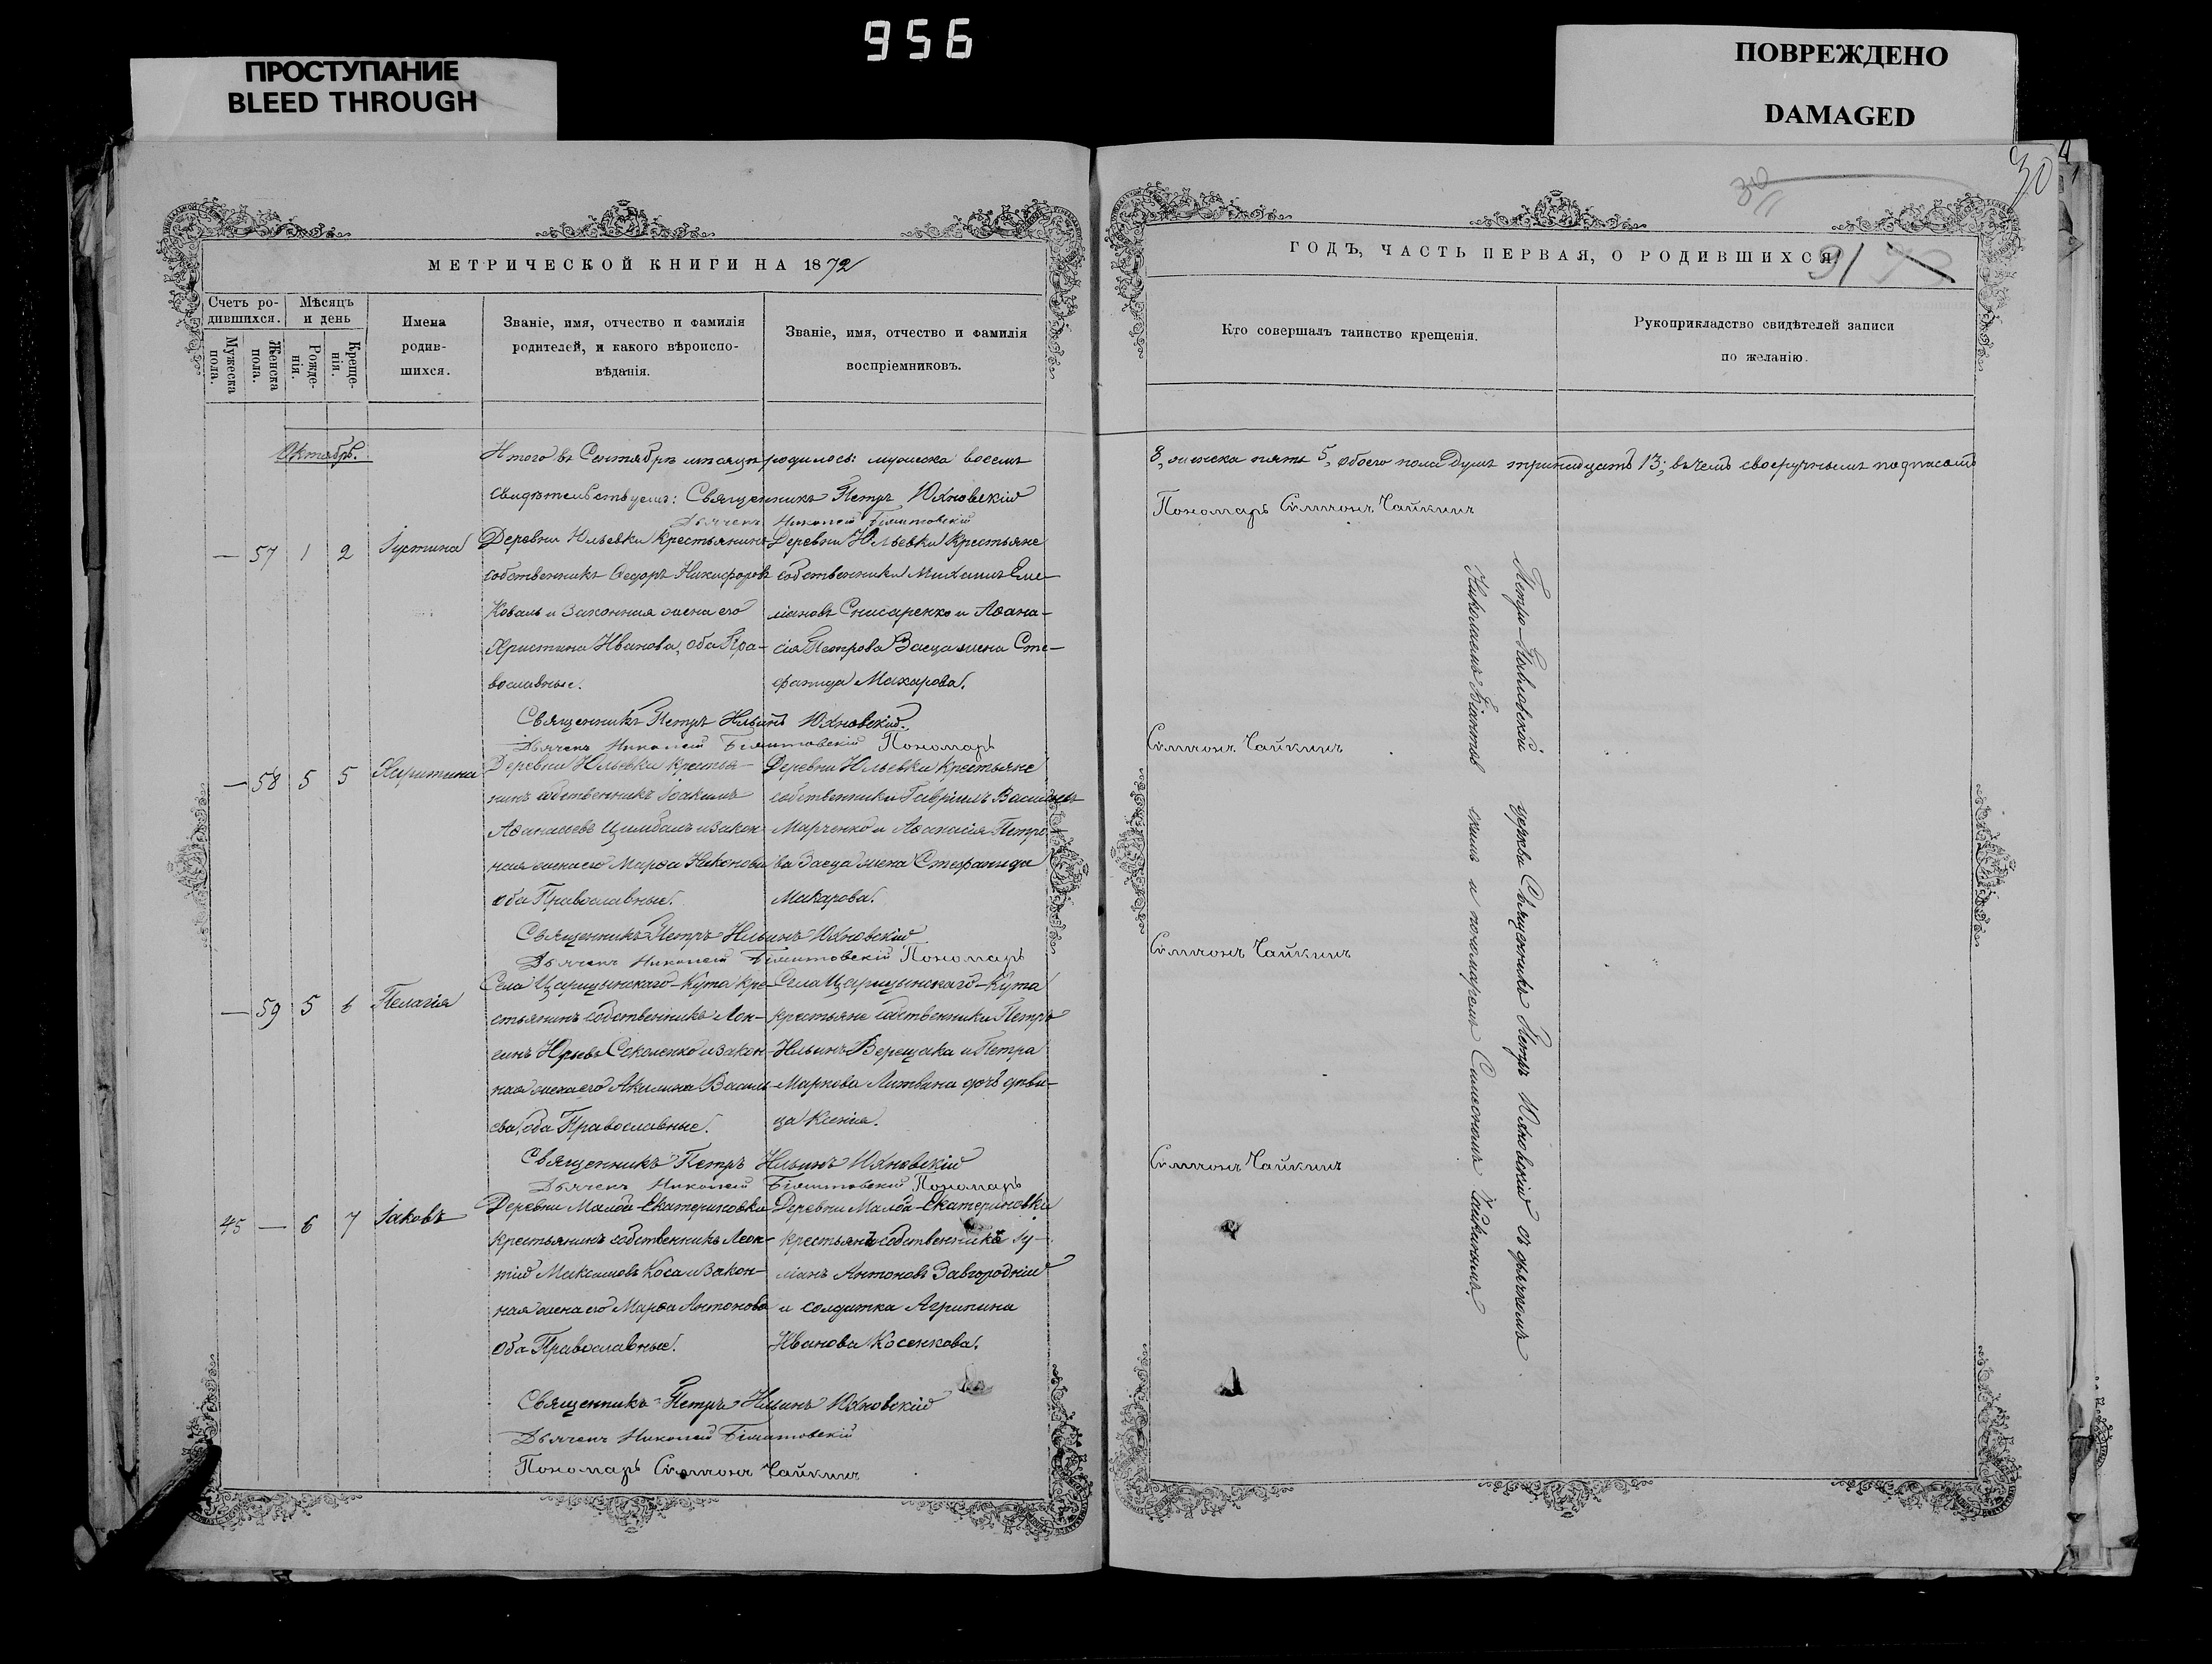 956
ПРОСТУПАНИЕ
BLEED THROUGH
ПОВРЕЖДЕНО
DAMAGED
30
МЕТРИЧЕСКОЙ КНИГИ НА 1872
Счетъ родившихся.
Мѣсяцъ и день
Мужеска пола.
Женска пола.
Рожденія.
Крещенія.
Имена
родив-
шихся.
Званіе, имя, отчество и фамилія
родителей, и какого вѣроиспо-
вѣданія.
Званіе, имя, отчество и фамилія
воспріемниковъ.
Октябрь.
Итого въ Сентябрѣ мѣсяцѣ родилось: мужеска восемь
свидѣтельствуемъ: Священникъ Петръ Юхновскій
Дьячекъ Николай
— 57 1 2 Іустина
Деревни Юльевки крестьянинъ
собственникъ Ѳедоръ Никифоровъ
Коваль и законная жена его
Христина Иванова, оба Пра-
вославные.
Деревни Юльевки крестьяне
собственники Михаилъ Еме-
ліановъ Снисаренко и Аѳана-
сія Петрова Заеца жена Сте-
фанида Макарова.
Священникъ Петръ Ильинъ Юхновскій.
Дьячекъ Николай Пономарь
— 58 5 5 Харитина
Деревни Юльевки крестья-
нинъ собственникъ Іоакимъ
Аѳанасьевъ Цимбалъ и закон-
ная жена его Марѳа Никонова
оба Православные.
Деревни Юльевки крестьяне
собственники Гавріилъ Васильевъ
Марченко и Аѳанасія Петро-
ва Заеца жена Стефанида
Макарова.
Священникъ Петръ Ильинъ Юхновскій
Дьячекъ Николай Пономарь
— 59 5 6 Пелагія
Села Царицынскаго-Кута кре-
стьянинъ собственникъ Лон-
гинъ Юрьевъ Соколенко и закон-
ная жена его Акилина Василь-
ева, оба Православные.
Села Царицынскаго-Кута
крестьяне собственники Петръ
Ильинъ Верещака и Петра
Маркова Литвина дочь дѣви-
ца Ксенія.
Священникъ Петръ Ильинъ Юхновскій
Дьячекъ Николай Пономарь
45 — 6 7 Іаковъ
Деревни Малой-Екатериновки
крестьянинъ собственникъ Леон-
тій Максимовъ Коса и закон-
ная жена его Марѳа Антонова
оба Православные.
Деревни Малой-Екатериновки
крестьянъ собственникъ Іу-
ліанъ Антоновъ Завгородній
и солдатка Агрипина
Иванова Косенкова.
Священникъ Петръ Ильинъ Юхновскій
Дьячекъ Николай
Пономарь Симеонъ Чайкинъ
ГОДЪ, ЧАСТЬ ПЕРВАЯ, О РОДИВШИХСЯ.
91
Кто совершалъ таинство крещенія.
Рукоприкладство свидѣтелей записи
по желанію.
8, женска пять 5, обоего пола душъ тринадцать 13; въ чемъ своеручнымъ подписомъ
Пономарь Симеонъ Чайкинъ
Симеонъ Чайкинъ
Симеонъ Чайкинъ
Симеонъ Чайкинъ
Петро-Павловской церкви Священникъ Петръ Юхновскій съ дьячкомъ
Николаемъ и пономаремъ Симеономъ Чайкинымъ.